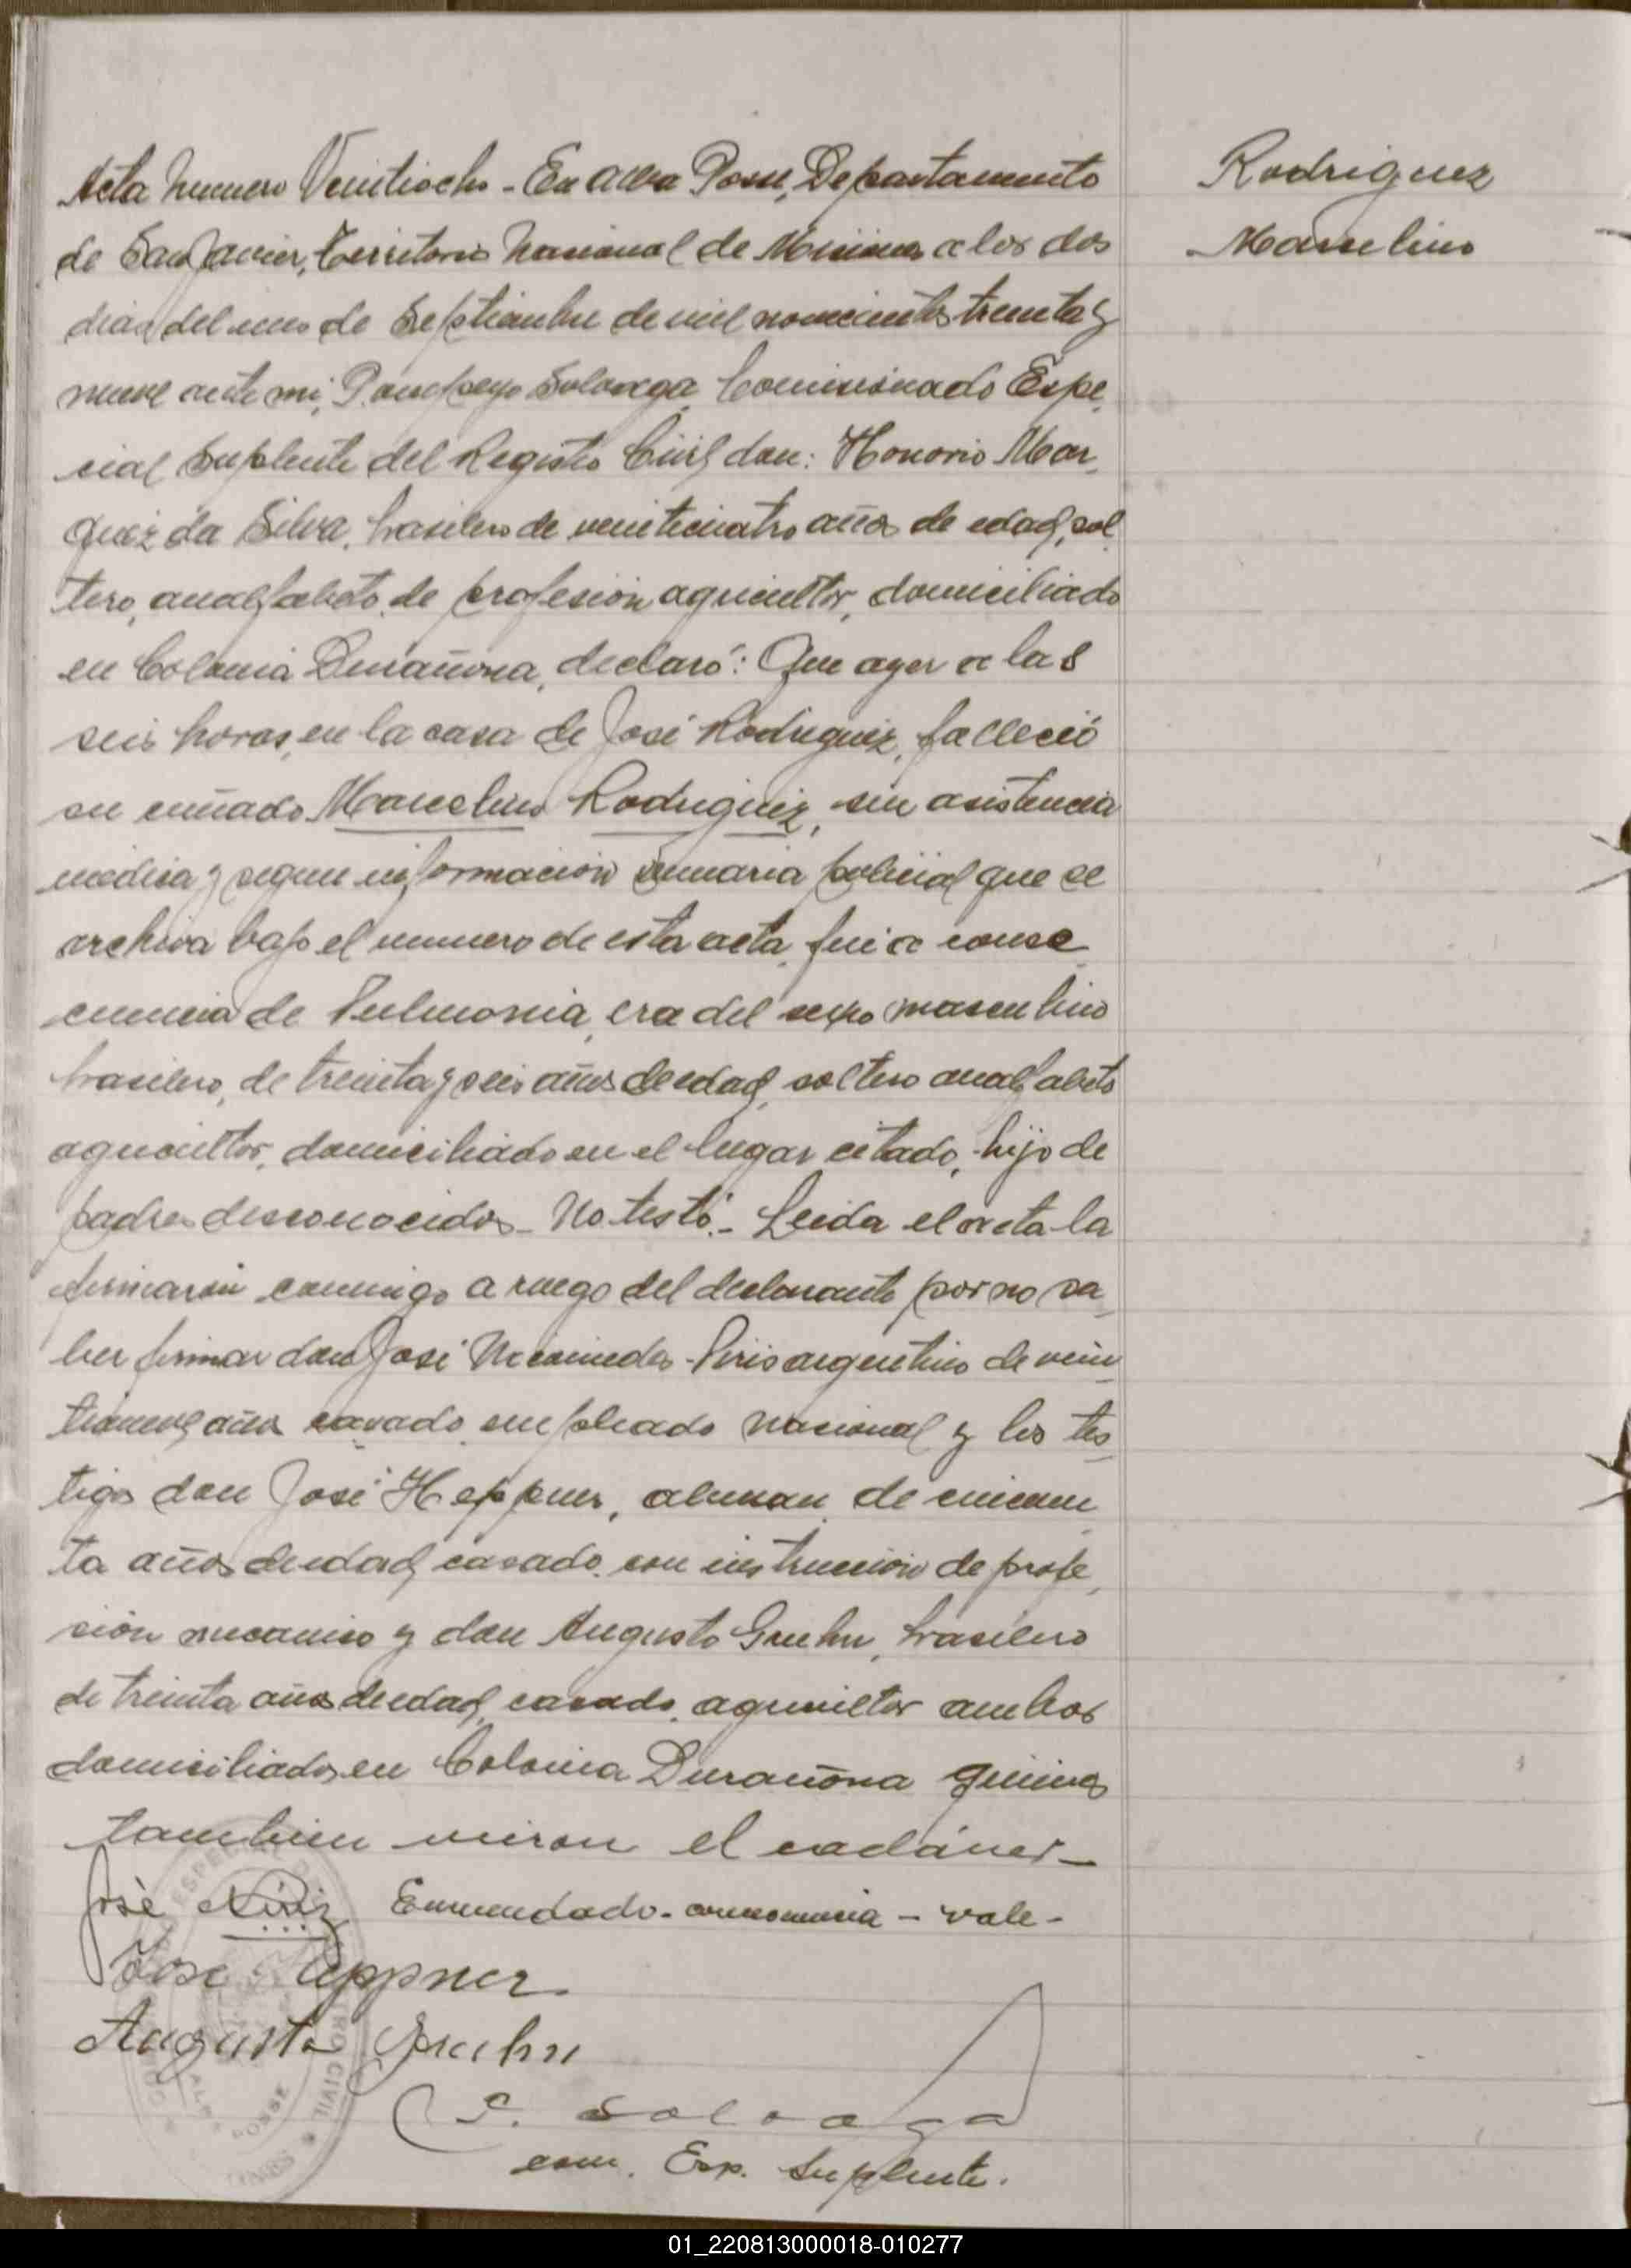 Rodriguez
Marselino
Acta Numero Veintiocho - En Alba Posse, Departamento
de San Javier, Territorio Nacional de Misiones a los dos
dias del mes de Septiembre de mil novecientos treinta y
nueve ante mi, Pompeyo Soloaga Comisionado Espe
cial Suplente del Registro Civil don: Honorio Mar
quez da Silva, brasilero de veinticuatro años de edad, sol
tero, analfabeto, de profesion agricultor, domiciliado
en Colonia Durañona, declaró: Que ayer a las
seis horas, en la casa de José Rodriguez, falleció
su cuñado Marcelino Rodriguez, sin asistencia
medica y segun informacion sumaria policial que se
archiva bajo el numero de esta acta, fué a conse
cuencia de Pulmonia, era del sexo masculino
brasilero, de treinta y seis años de edad, soltero analfabeto
agricultor, domiciliado en el lugar citado, hijo de
padres desconocidos - No testó - Leida el acta la
firmarón conmigo a ruego del declarante por no sa
ber firmar don José Nicomedes Piris argentino de vein
tinueve años casado empleado nacional y los tes
tigos don José Heppner, aleman, de cincuen
ta años de edad, casado, con instruccion de profe
sión mecanico y don Augusto Gruhn, brasilero
de treinta años de edad, casado, agricultor ambos
domiciliados en Colonia Durañona quienes
tambien vieron el cadáver -
José N. Piriz Enmendado - - vale -
José Heppner
Augusto Gruhn
P. Soloaga
com. Esp. Suplente.
01_220813000018-010277